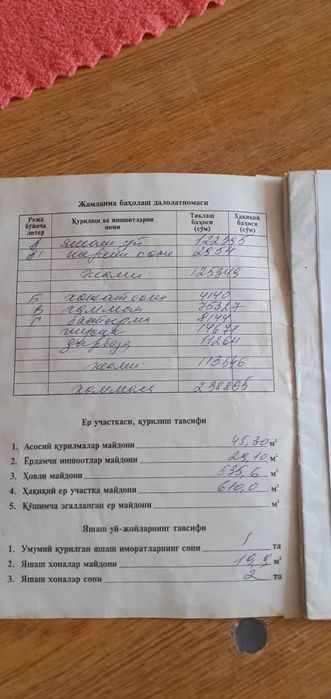 Жамланма баҳолаш далолатномаси
Режа бўйича литер
Қурилиш ва иншоотларни номи
Тиклаш баҳоси (сўм)
Ҳақиқий баҳоси (сўм)
А яшаш уй 122395
А' 2954
жами 125349
Б хожатхона 4140
В хаммом
Г бастирма 8144
дарвоза 11264
жами 113546
хаммаси 238895
Ер участкаси, қурилиш тавсифи
1. Асосий қурилмалар майдони 45,30 м²
2. Ёрдамчи иншоотлар майдони 29,10 м²
3. Ҳовли майдони 535,6 м²
4. Ҳақиқий ер участка майдони 610,0 м²
5. Қўшимча эгалланган ер майдони м²
Яшаш уй-жойларнинг тавсифи
1. Умумий қурилган яшаш иморатларнинг сони 1 та
2. Яшаш хоналар майдони м²
3. Яшаш хоналар сони 2 та